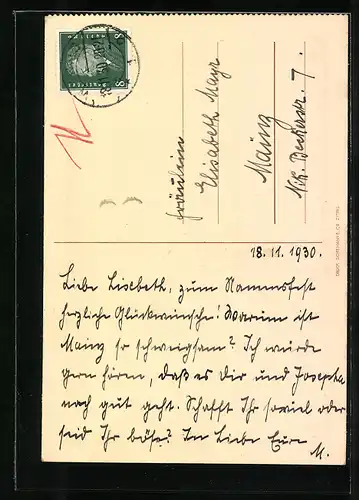 Fräulein
Elisabeth Mayr
Mainz
Nik. Beckerstr. 7.
18.11.1930.
Liebe Lisebeth, zum Namensfest
herzliche Glückwünsche! Warum ist
Mainz so schweigsam? Ich würde
gern hören, daß es Dir und Josepha
noch gut geht. Schafft Ihr soviel oder
seid Ihr böse? In Liebe Eure
M.
8 8